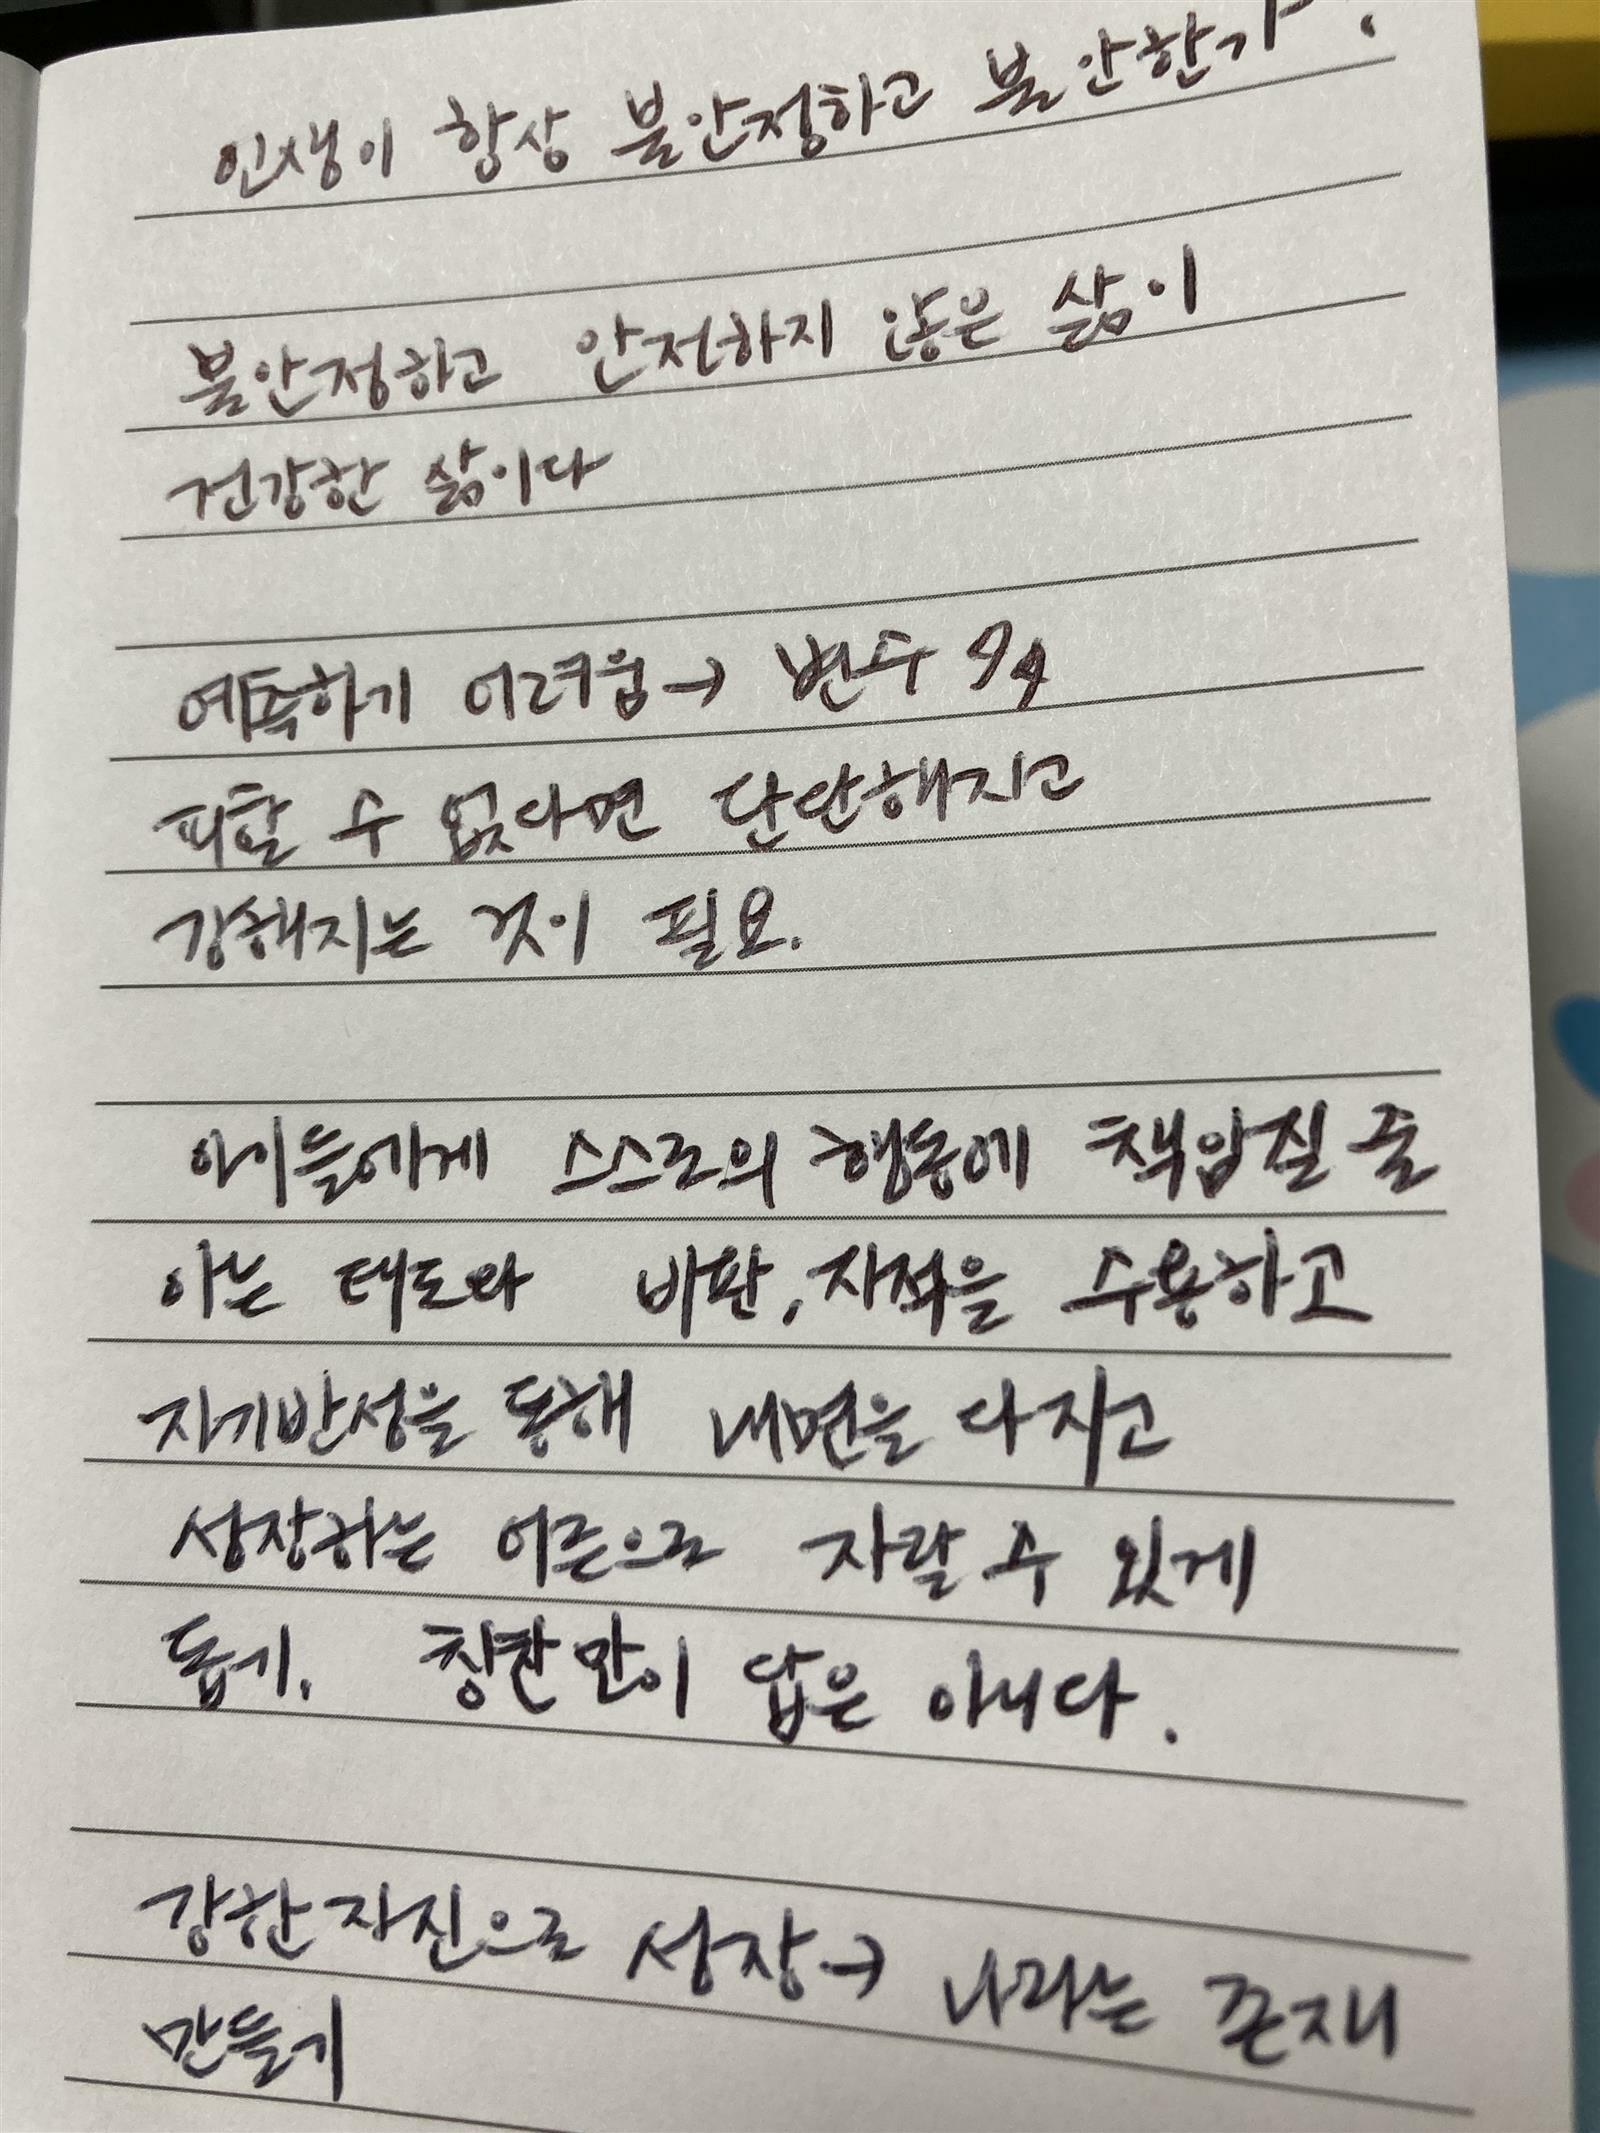 인생이 항상 불안정하고 불안한가?
불안정하고 안전하지 않은 삶이
건강한 삶이다
예측하기 어려움→ 변수
피할 수 없다면 단단해지고
강해지는 것이 필요.
아이들에게 스스로의 행동에 책임질 줄
아는 태도와 비판, 지적을 수용하고
자기반성을 통해 내면을 다지고
성장하는 어른으로 자랄 수 있게
돕기. 칭찬만이 답은 아니다.
강한 자신으로 성장→ 나라는 존재
만들기